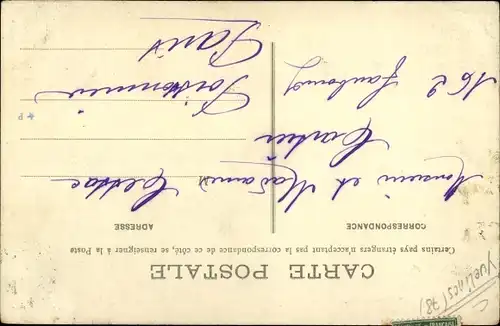 CARTE POSTALE
Certains pays étrangers n'acceptant pas la correspondance de ce côté, se renseigner à la Poste
CORRESPONDANCE
ADRESSE
Monsieur et Madame
162 Faubourg
Poissonnière
Paris
(78)